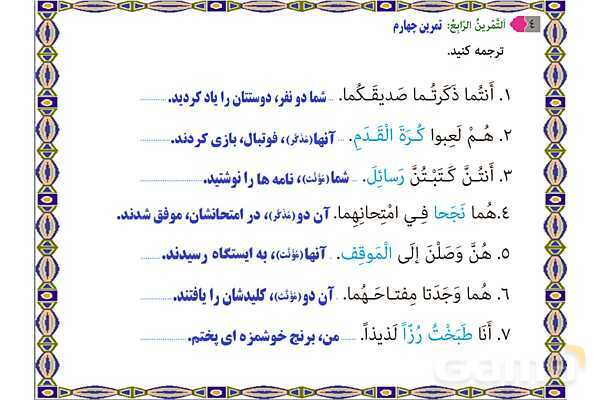 ٤ اَلتَّمْرينُ الرّابِعُ: تمرین چهارم
ترجمه کنید.
١. أَنتُما ذَكَرتُـما صَديقَـكُما. ... شما دو نفر، دوستتان را یاد کردید. ...........
٢. هُـمْ لَعِبوا كُـرَةَ الْـقَـدَمِ. ... آنها(مذکّر)، فوتبال، بازی کردند. ...........
٣. أَنتُـنَّ كَـتَبْـتُنَّ رَسائِلَ. ... شما(مؤنّث)، نامه ها را نوشتید. ...........
٤. هُما نَجَحا فِـي امْتِحانِهِما. آن دو(مذکّر)، در امتحانشان، موفق شدند.
٥. هُنَّ وَصَلْنَ إلَى الْمَوقِفِ. .. آنها(مؤنّث)، به ایستگاه رسیدند. ...........
٦. هُما وَجَدَتا مِفتـاحَـهُما. .. آن دو(مؤنّث)، کلیدشان را یافتند. ...........
٧. أَنَا طَبَخْتُ رُزّاً لَذيذاً. ..... من، برنج خوشمزه ای پختم. ...........
Gama